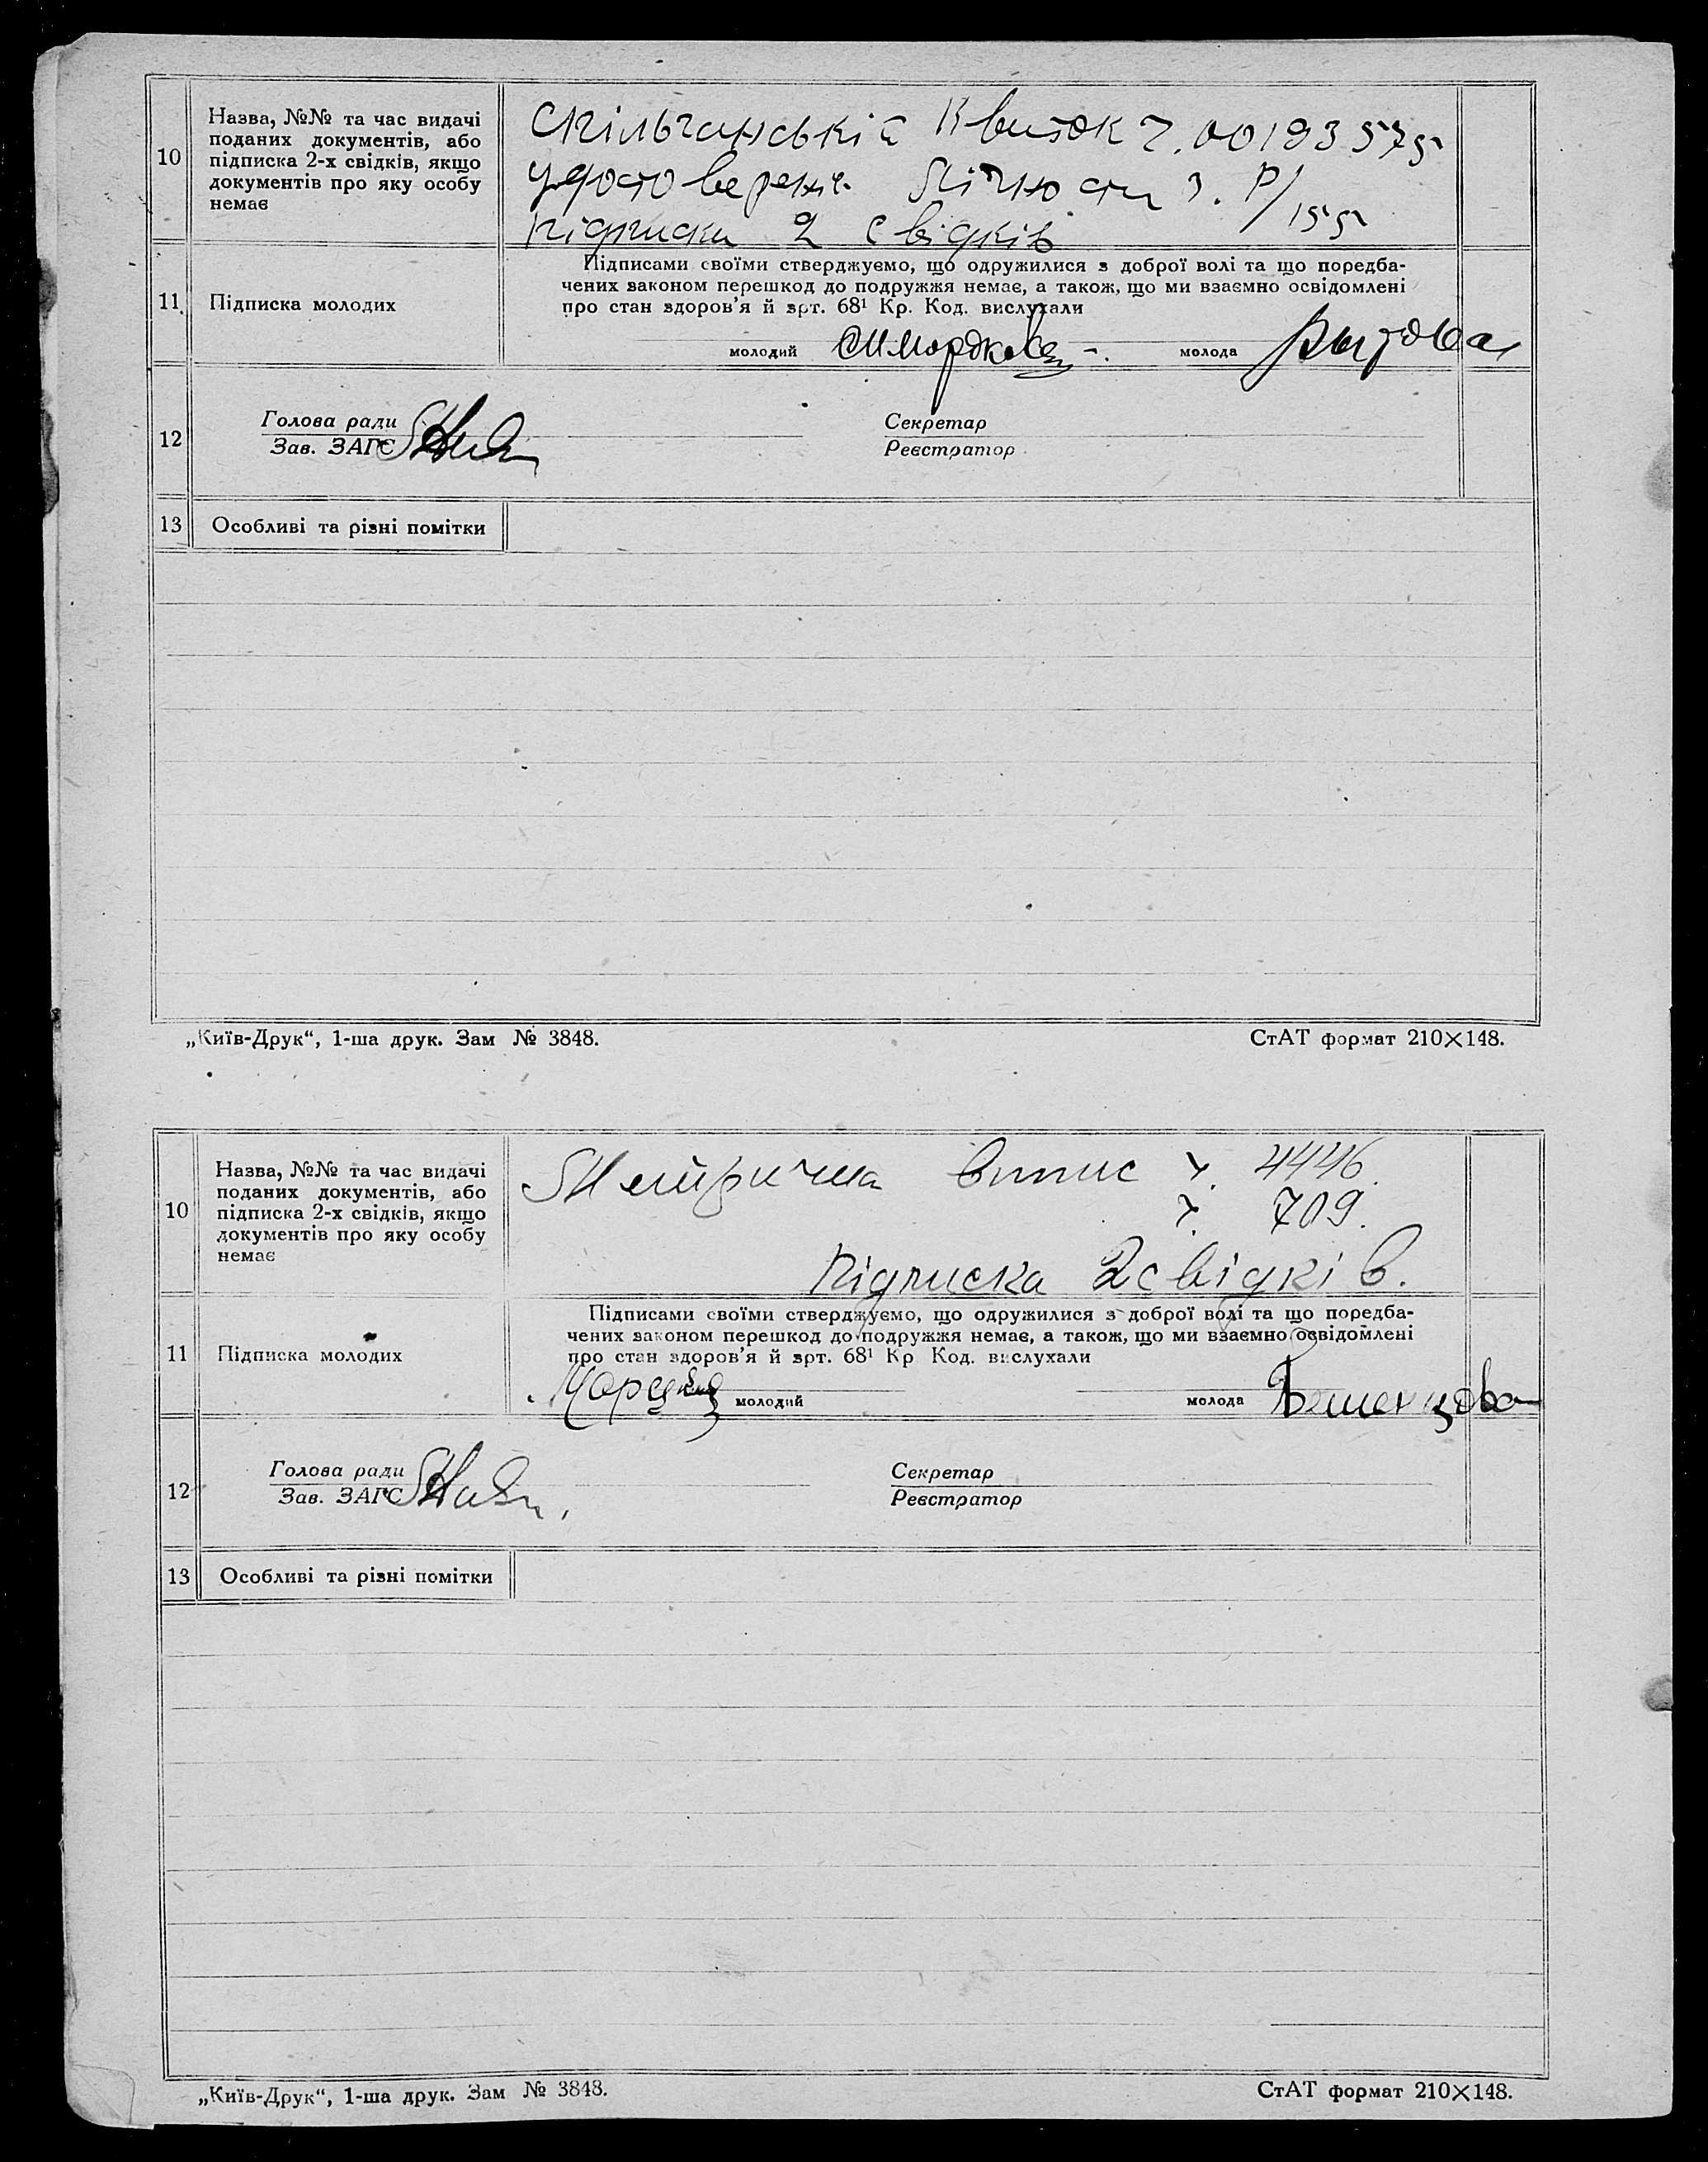 10
Назва, №№ та час видачі
поданих документів, або
підписка 2-х свідків, якщо
документів про яку особу
немає
Спільчанський Квиток ч. 00193575
удостоверение Лічности з. Р/155
підписки 2 свідків
11
Підписка молодих
Підписами своїми стверджуємо, що одружилися з доброї волі та що передба-
чених законом перешкод до подружжя немає, а також, що ми взаємно освідомлені
про стан здоров'я й арт. 68¹ Кр. Код. вислухали
молодий
молода
12
Голова ради
Зав. ЗАГС
Секретар
Реєстратор
13
Особливі та різні помітки
„Київ-Друк“, 1-ша друк. Зам № 3848.
СтАТ формат 210×148.
10
Назва, №№ та час видачі
поданих документів, або
підписка 2-х свідків, якщо
документів про яку особу
немає
Метрична випис ч. 4446.
ч. 709.
підписка 2 свідків.
11
Підписка молодих
Підписами своїми стверджуємо, що одружилися з доброї волі та що передба-
чених законом перешкод до подружжя немає, а також, що ми взаємно освідомлені
про стан здоров'я й арт. 68¹ Кр Код. вислухали
молодий
молода
12
Голова ради
Зав. ЗАГС
Секретар
Реєстратор
13
Особливі та різні помітки
„Київ-Друк“, 1-ша друк. Зам № 3848.
СтАТ формат 210×148.